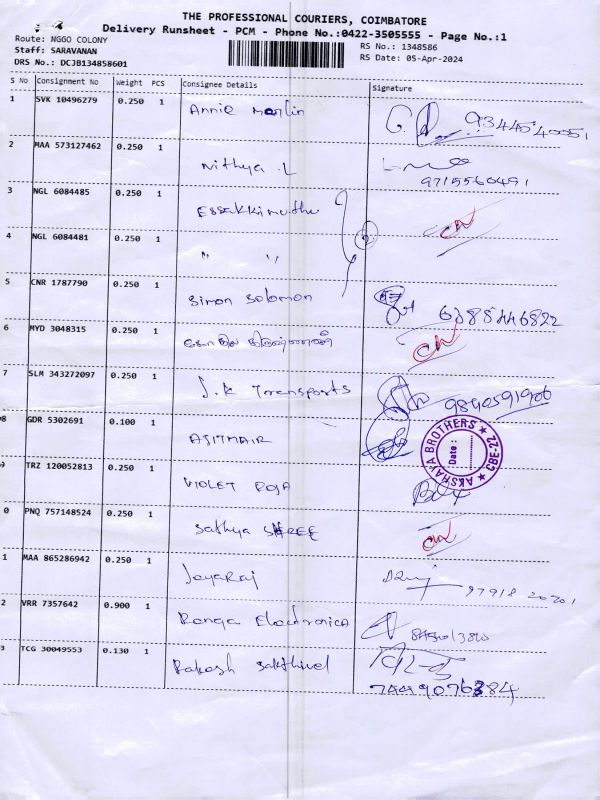 THE PROFESSIONAL COURIERS, COIMBATORE
Delivery Runsheet - PCM - Phone No.:0422-3505555 - Page No.:1
Route: NGGO COLONY
Staff: SARAVANAN
DRS No.: DCJB134858601
RS No.: 1348586
RS Date: 05-Apr-2024
S No Consignment No Weight PCS Consignee Details Signature
1 SVK 10496279 0.250 1 Annie Merlin
2 MAA 573127462 0.250 1 Nithya .L
9715560491
3 NGL 6084485 0.250 1 Essakkimuthu
4 NGL 6084481 0.250 1 " "
5 CNR 1787790 0.250 1 Simon Solomon 6388446822
6 MYD 3048315 0.250 1
7 SLM 343272097 0.250 1 J.K Transports
8 GDR 5302691 0.100 1
AKSHAYA BROTHERS
Date :
CBE-22
9 TRZ 120052813 0.250 1 VIOLET ROJA
0 PNQ 757148524 0.250 1 Sathya SHREE
1 MAA 865286942 0.250 1 Jayaraj
2 VRR 7357642 0.900 1 Ranga Electronica
3 TCG 30049553 0.130 1 Rakesh Sakthivel
7449076384